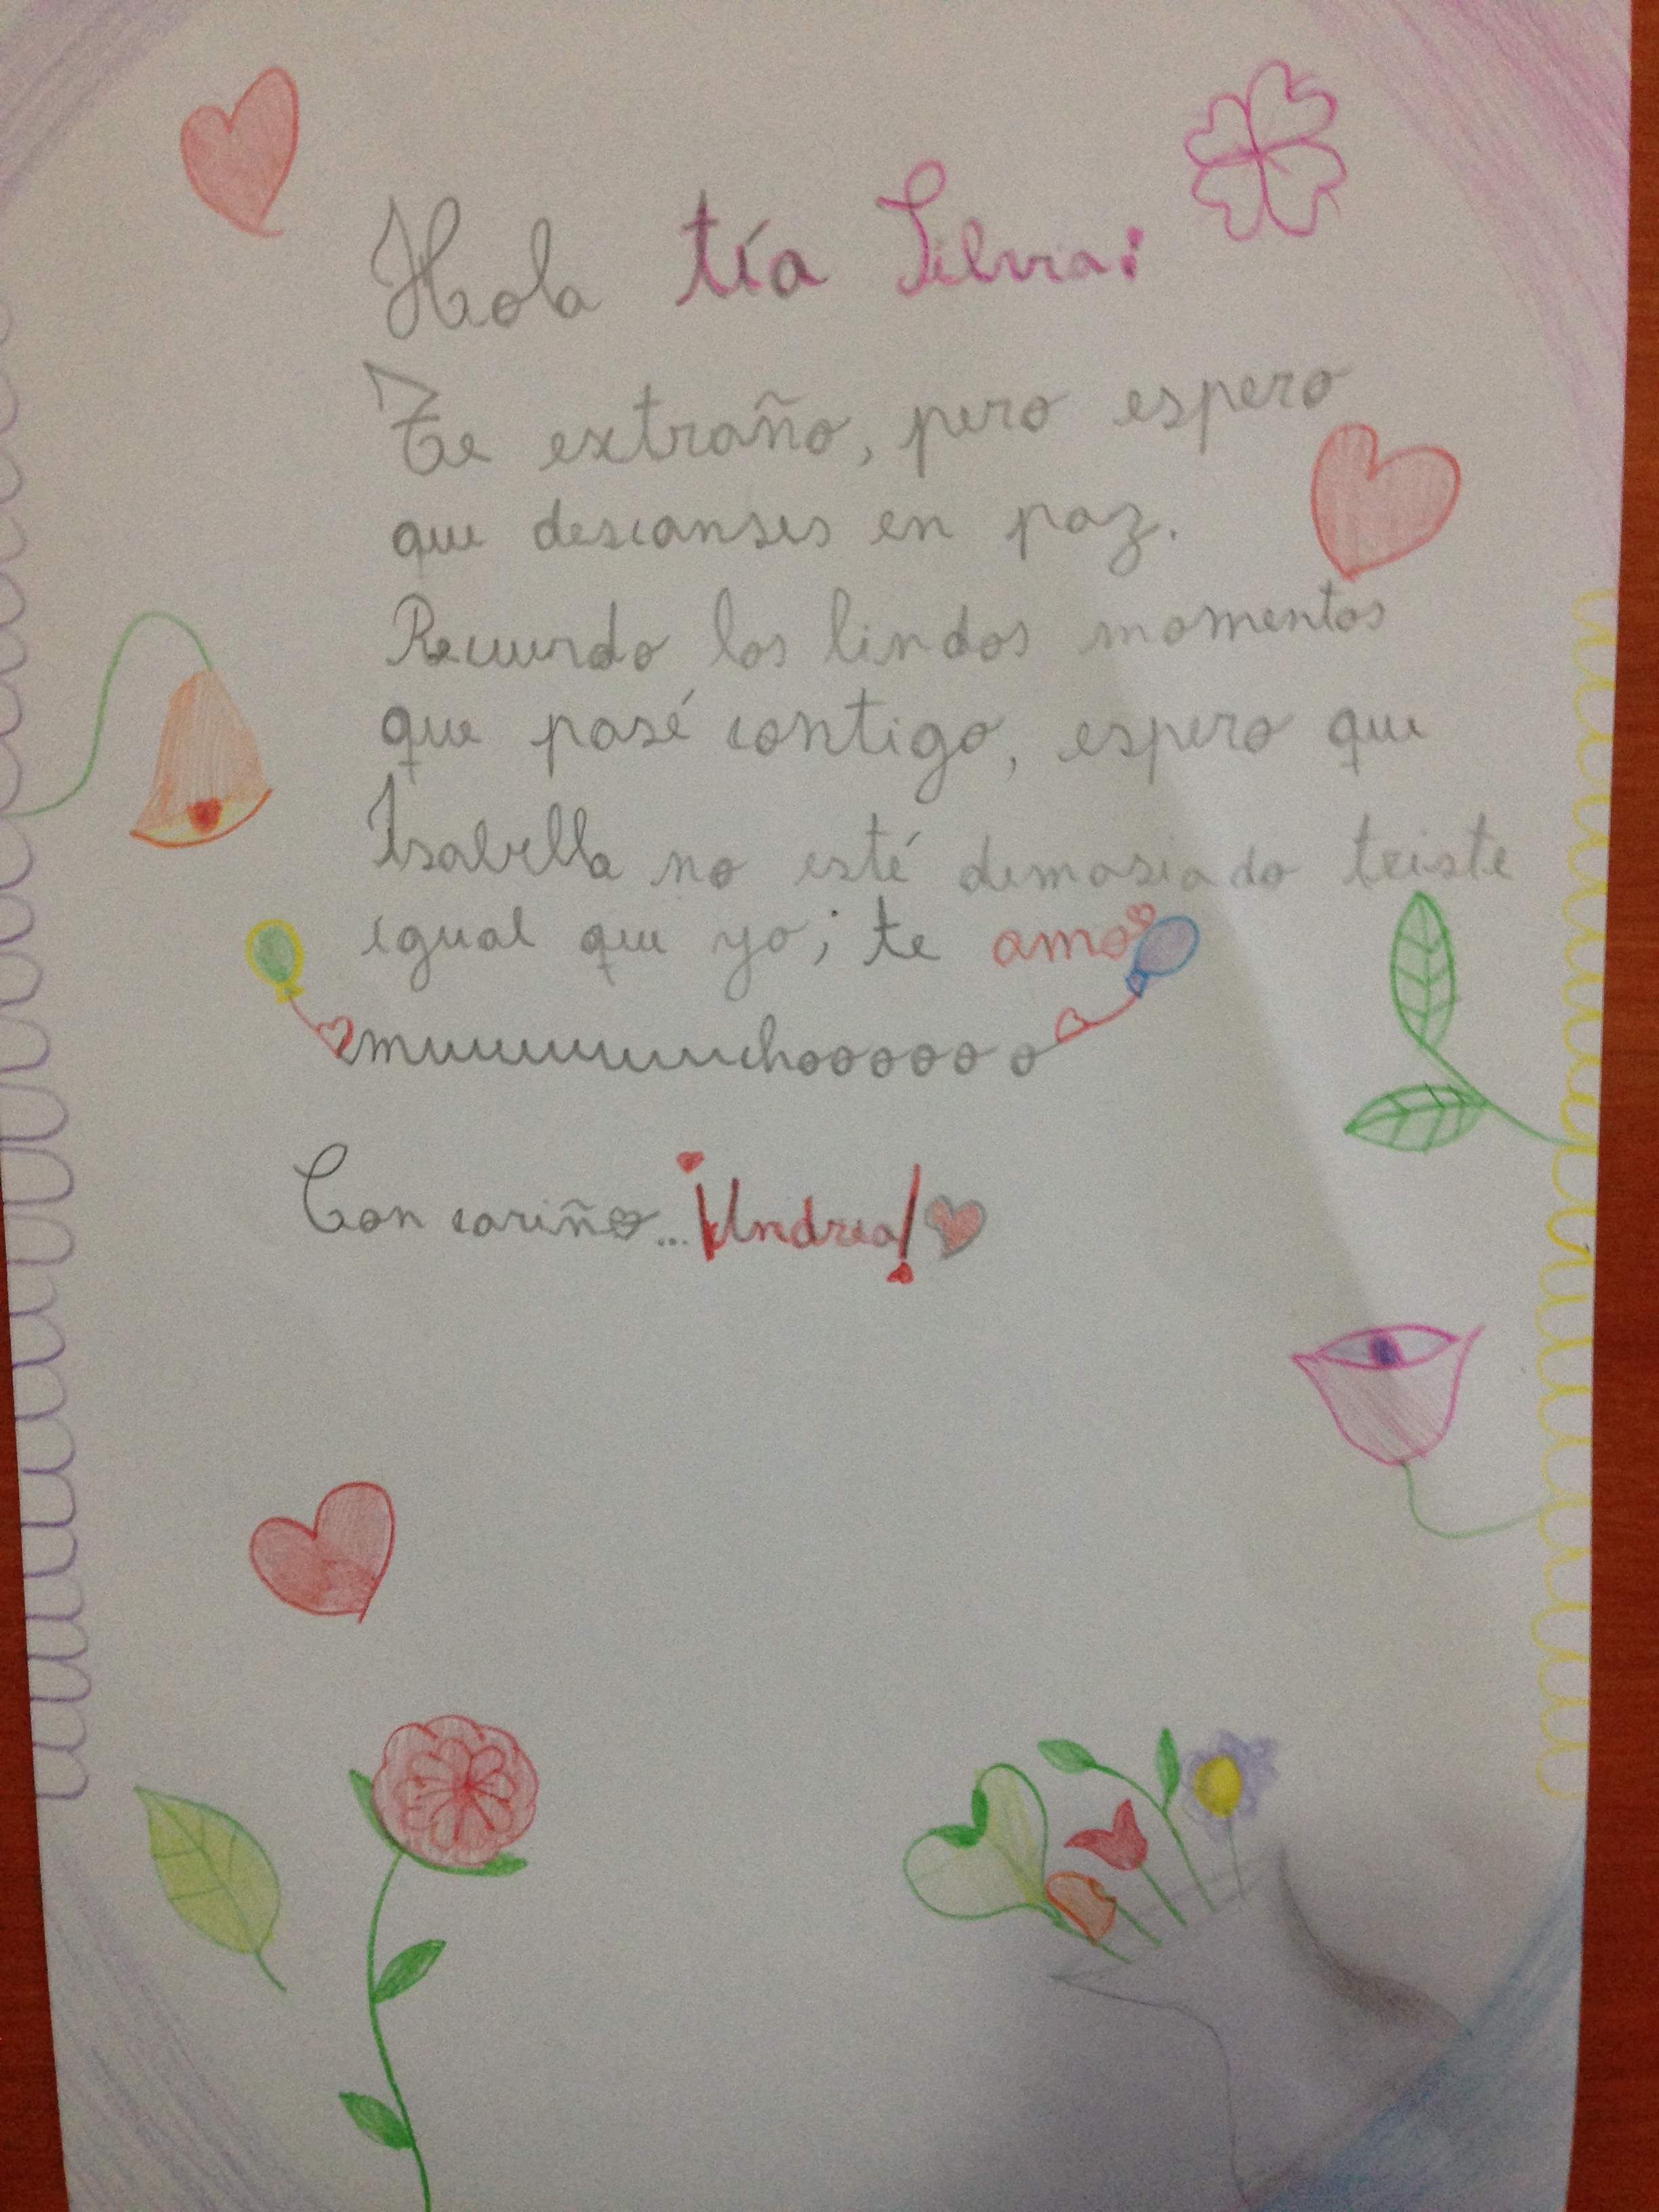 Hola tía Silvia:
Te extraño, pero espero
que descanses en paz.
Recuerdo los lindos momentos
que pasé contigo, espero que
Isabella no esté demasiado triste
igual que yo; te amo
muuuuuuuuchoooooo
Con cariño... ¡Andrea!